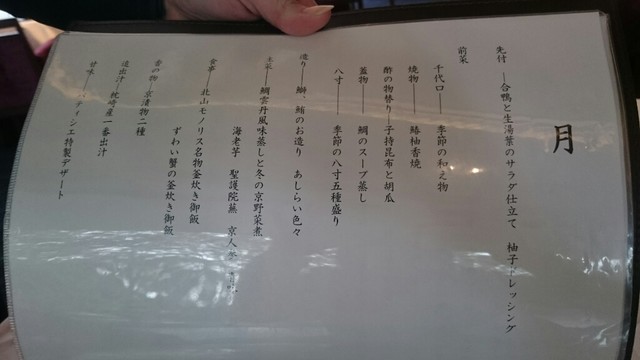 月
先付 ―合鴨と生湯葉のサラダ仕立て 柚子ドレッシング
前菜
千代口―― 季節の和え物
焼物―― 鰆柚香焼
酢の物替り―子持昆布と胡瓜
蓋物―― 鯛のスープ蒸し
八寸―― 季節の八寸五種盛り
造り―鰤、鮪のお造り あしらい色々
主菜―鯛雲丹風味蒸しと冬の京野菜煮
海老芋 聖護院蕪 京人参
食事― 北山モノリス名物釜炊き御飯
ずわい蟹の釜炊き御飯
香の物―京漬物二種
追出汁―枕崎産一番出汁
甘味――パティシエ特製デザート